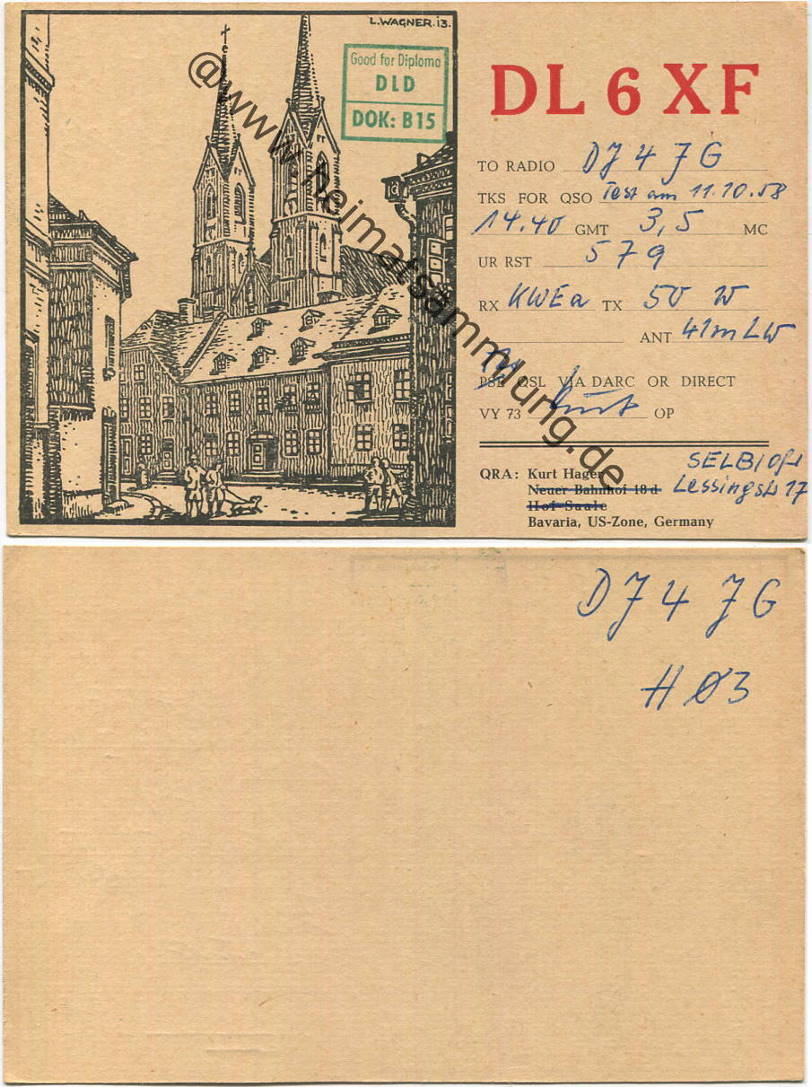 L. WAGNER. 13.
Good for Diploma
DLD
DOK: B15
@www.heimatsammlung.de
DL 6 XF
TO RADIO DJ 4 JG
TKS FOR QSO Test am 11.10.58
14.40 GMT 3,5 MC
UR RST 579
RX KWEa TX 50 W
ANT 41m LW
PSE QSL VIA DARC OR DIRECT
VY 73 Kurt OP
QRA: Kurt Hager
Neuer Bahnhof 18 d
Hof-Saale
Bavaria, US-Zone, Germany
SELB/Ofr
Lessingstr 17
DJ 4 JG
H Ø3